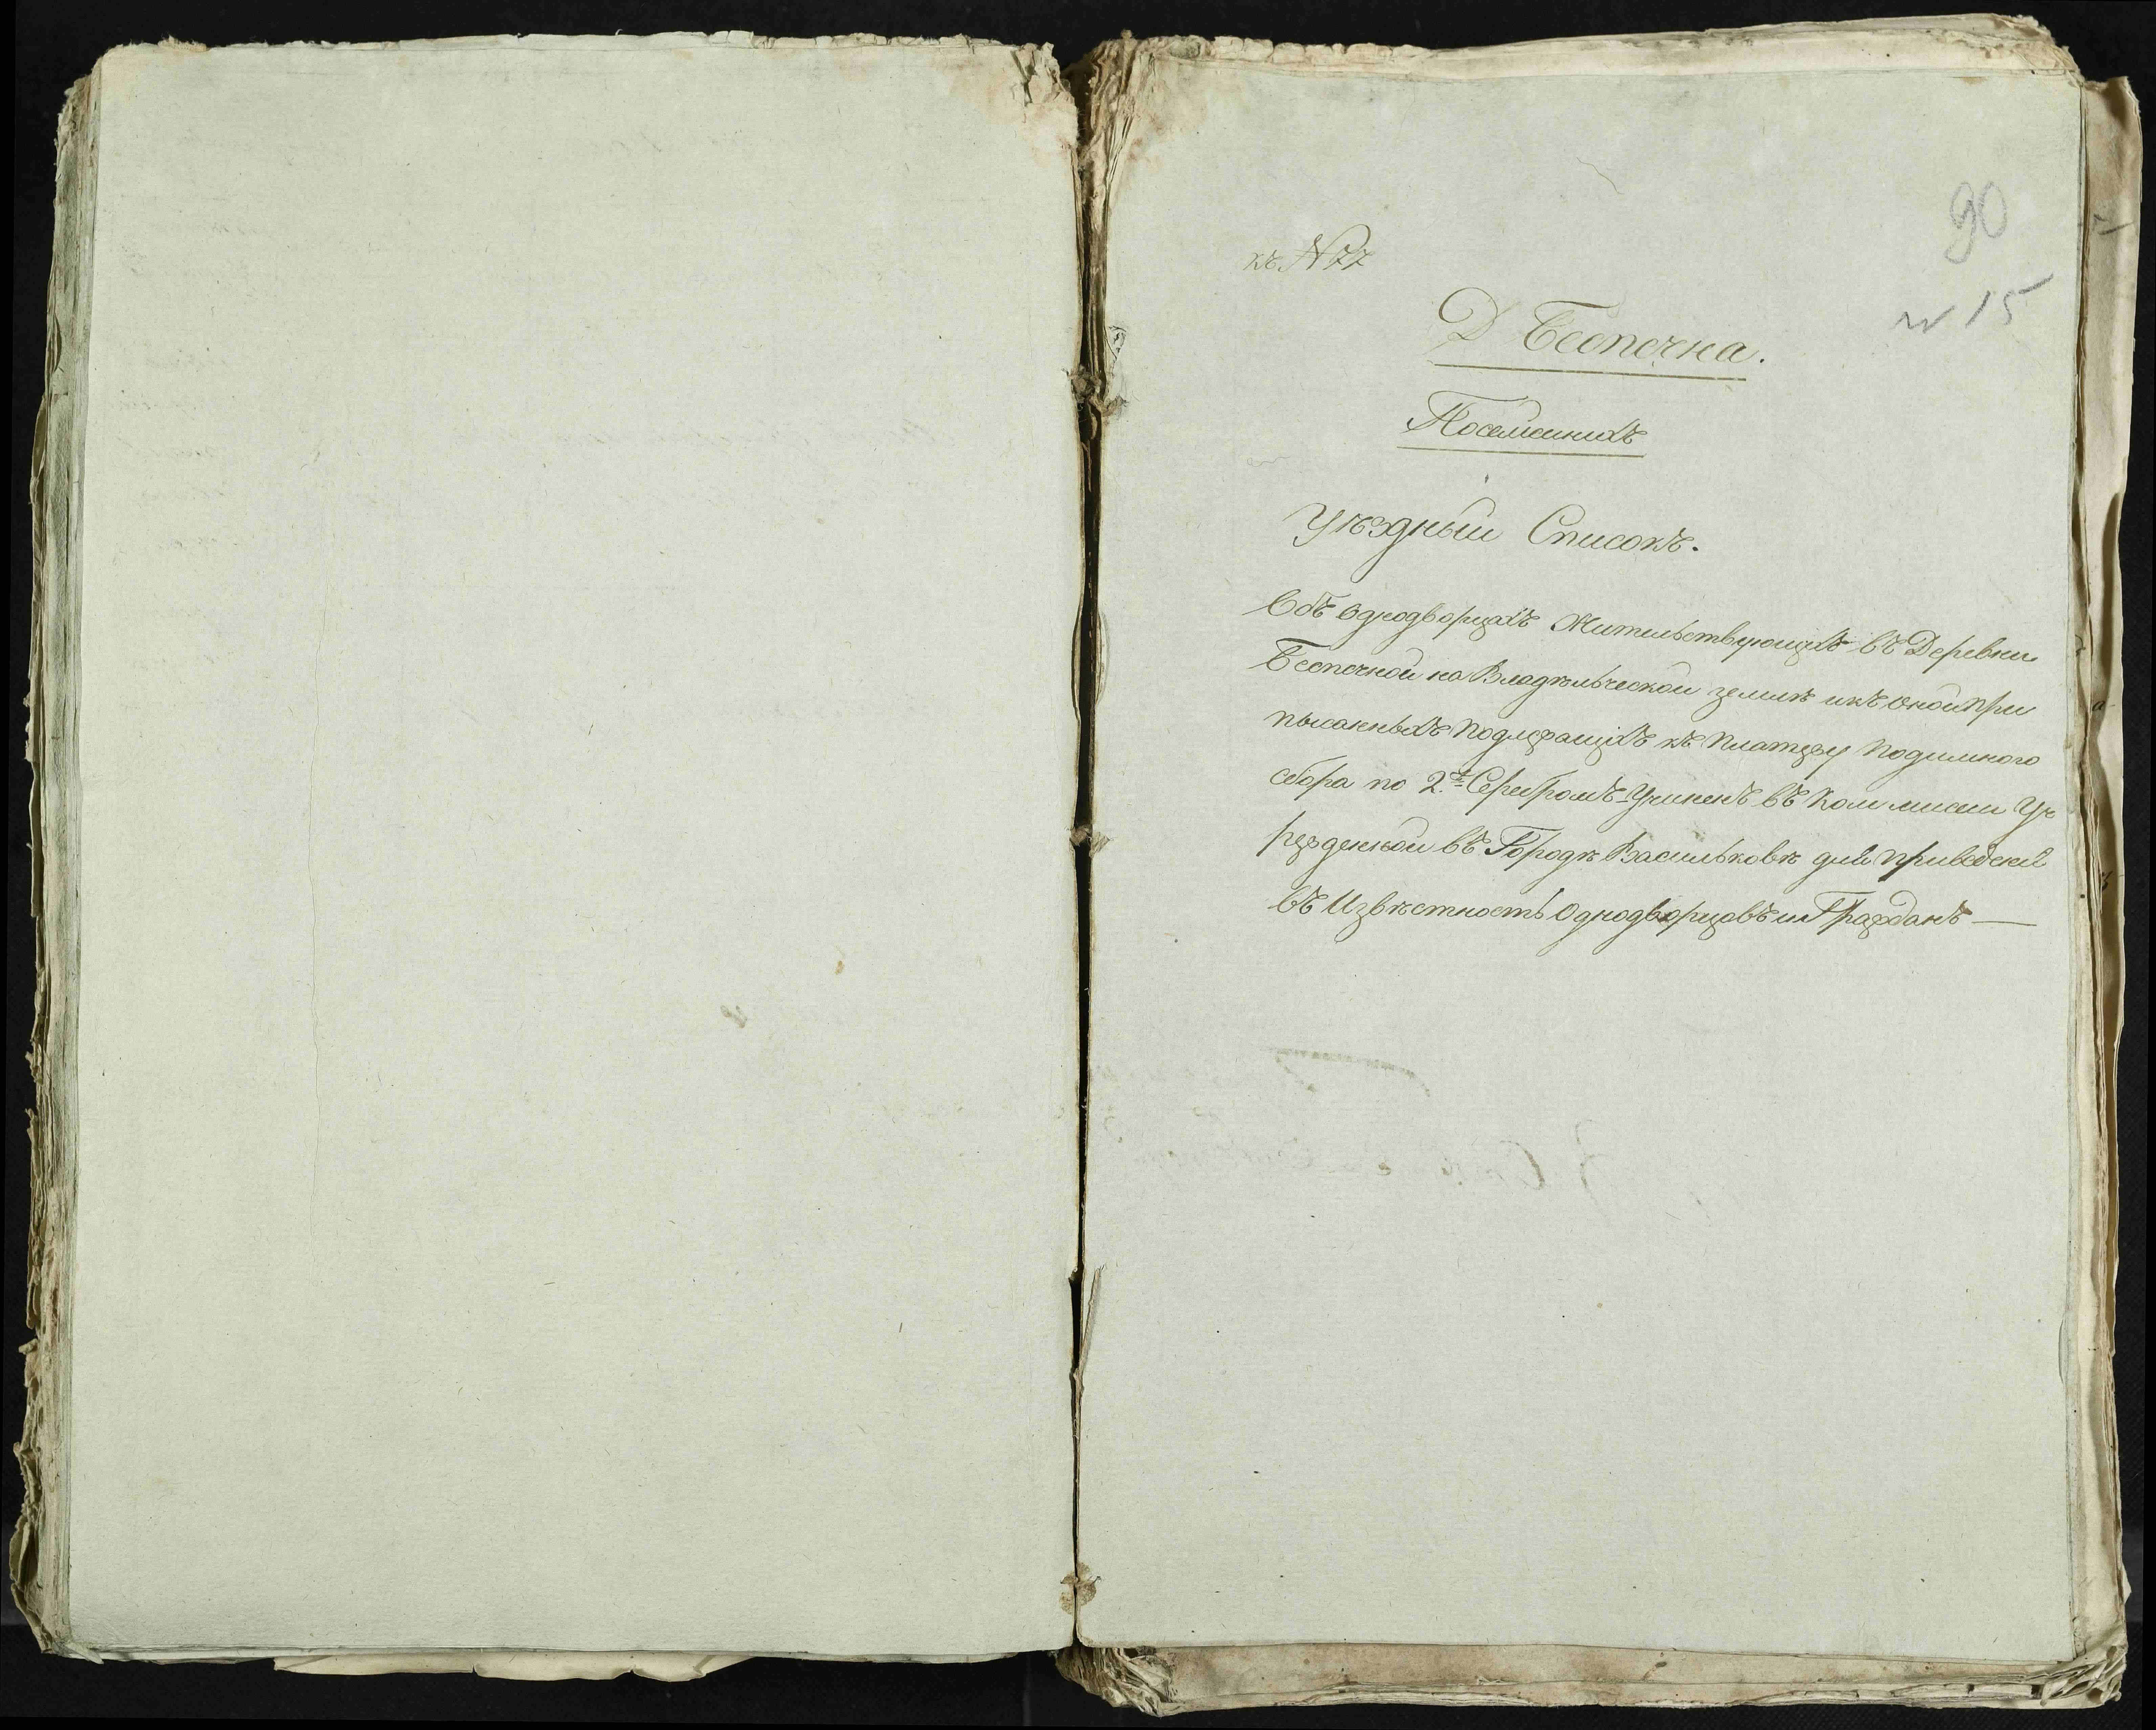 90
къ N 77
N 15
Д Беспечна.
Посемейныхъ
Уѣздный Списокъ.
Объ однодворцахъ Жительствующихъ въ Деревни
Беспечной на Владѣльческой землѣ икъ оной При
писанныхъ Подлежащихъ къ Платежу Подимного
сбора по 2. Серебромъ Учиненъ въ Коммисіи Уч
режденной въ Городѣ Василькове для приведенія
въ Извѣстность Однодворцовъ и Гражданъ —